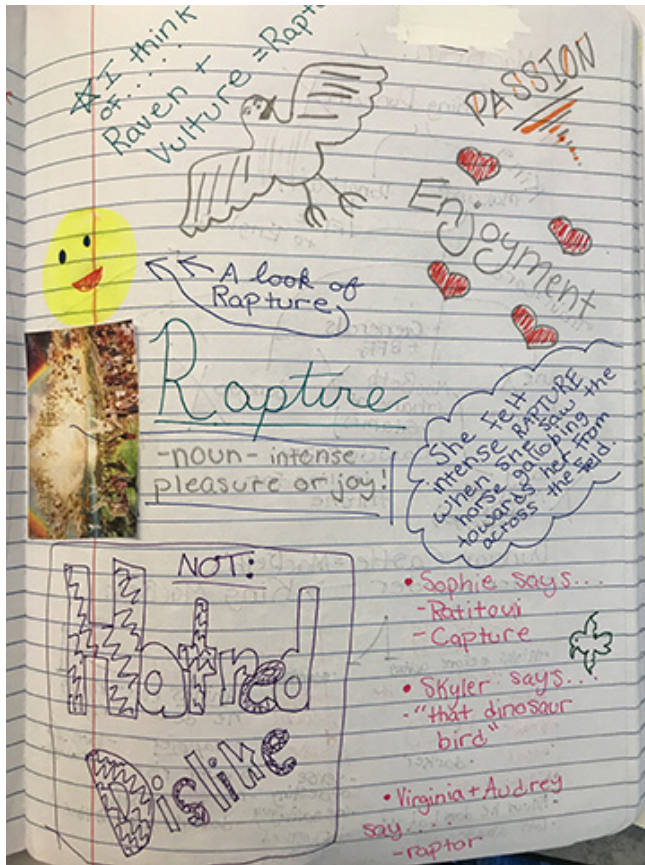 ☆ I think
of.....
Raven +
Vulture = Rapt
PASSION
Enjoyment
A look of
Rapture
Rapture
-noun- intense
pleasure or joy!
She felt
intense RAPTURE
when she saw the
horse galloping
towards her from
across the field.
NOT:
Hatred
Dislike
• Sophie says....
- Ratitoui
- Capture
• Skyler says...
- "that dinosaur
bird"
• Virginia + Audrey
say
- raptor